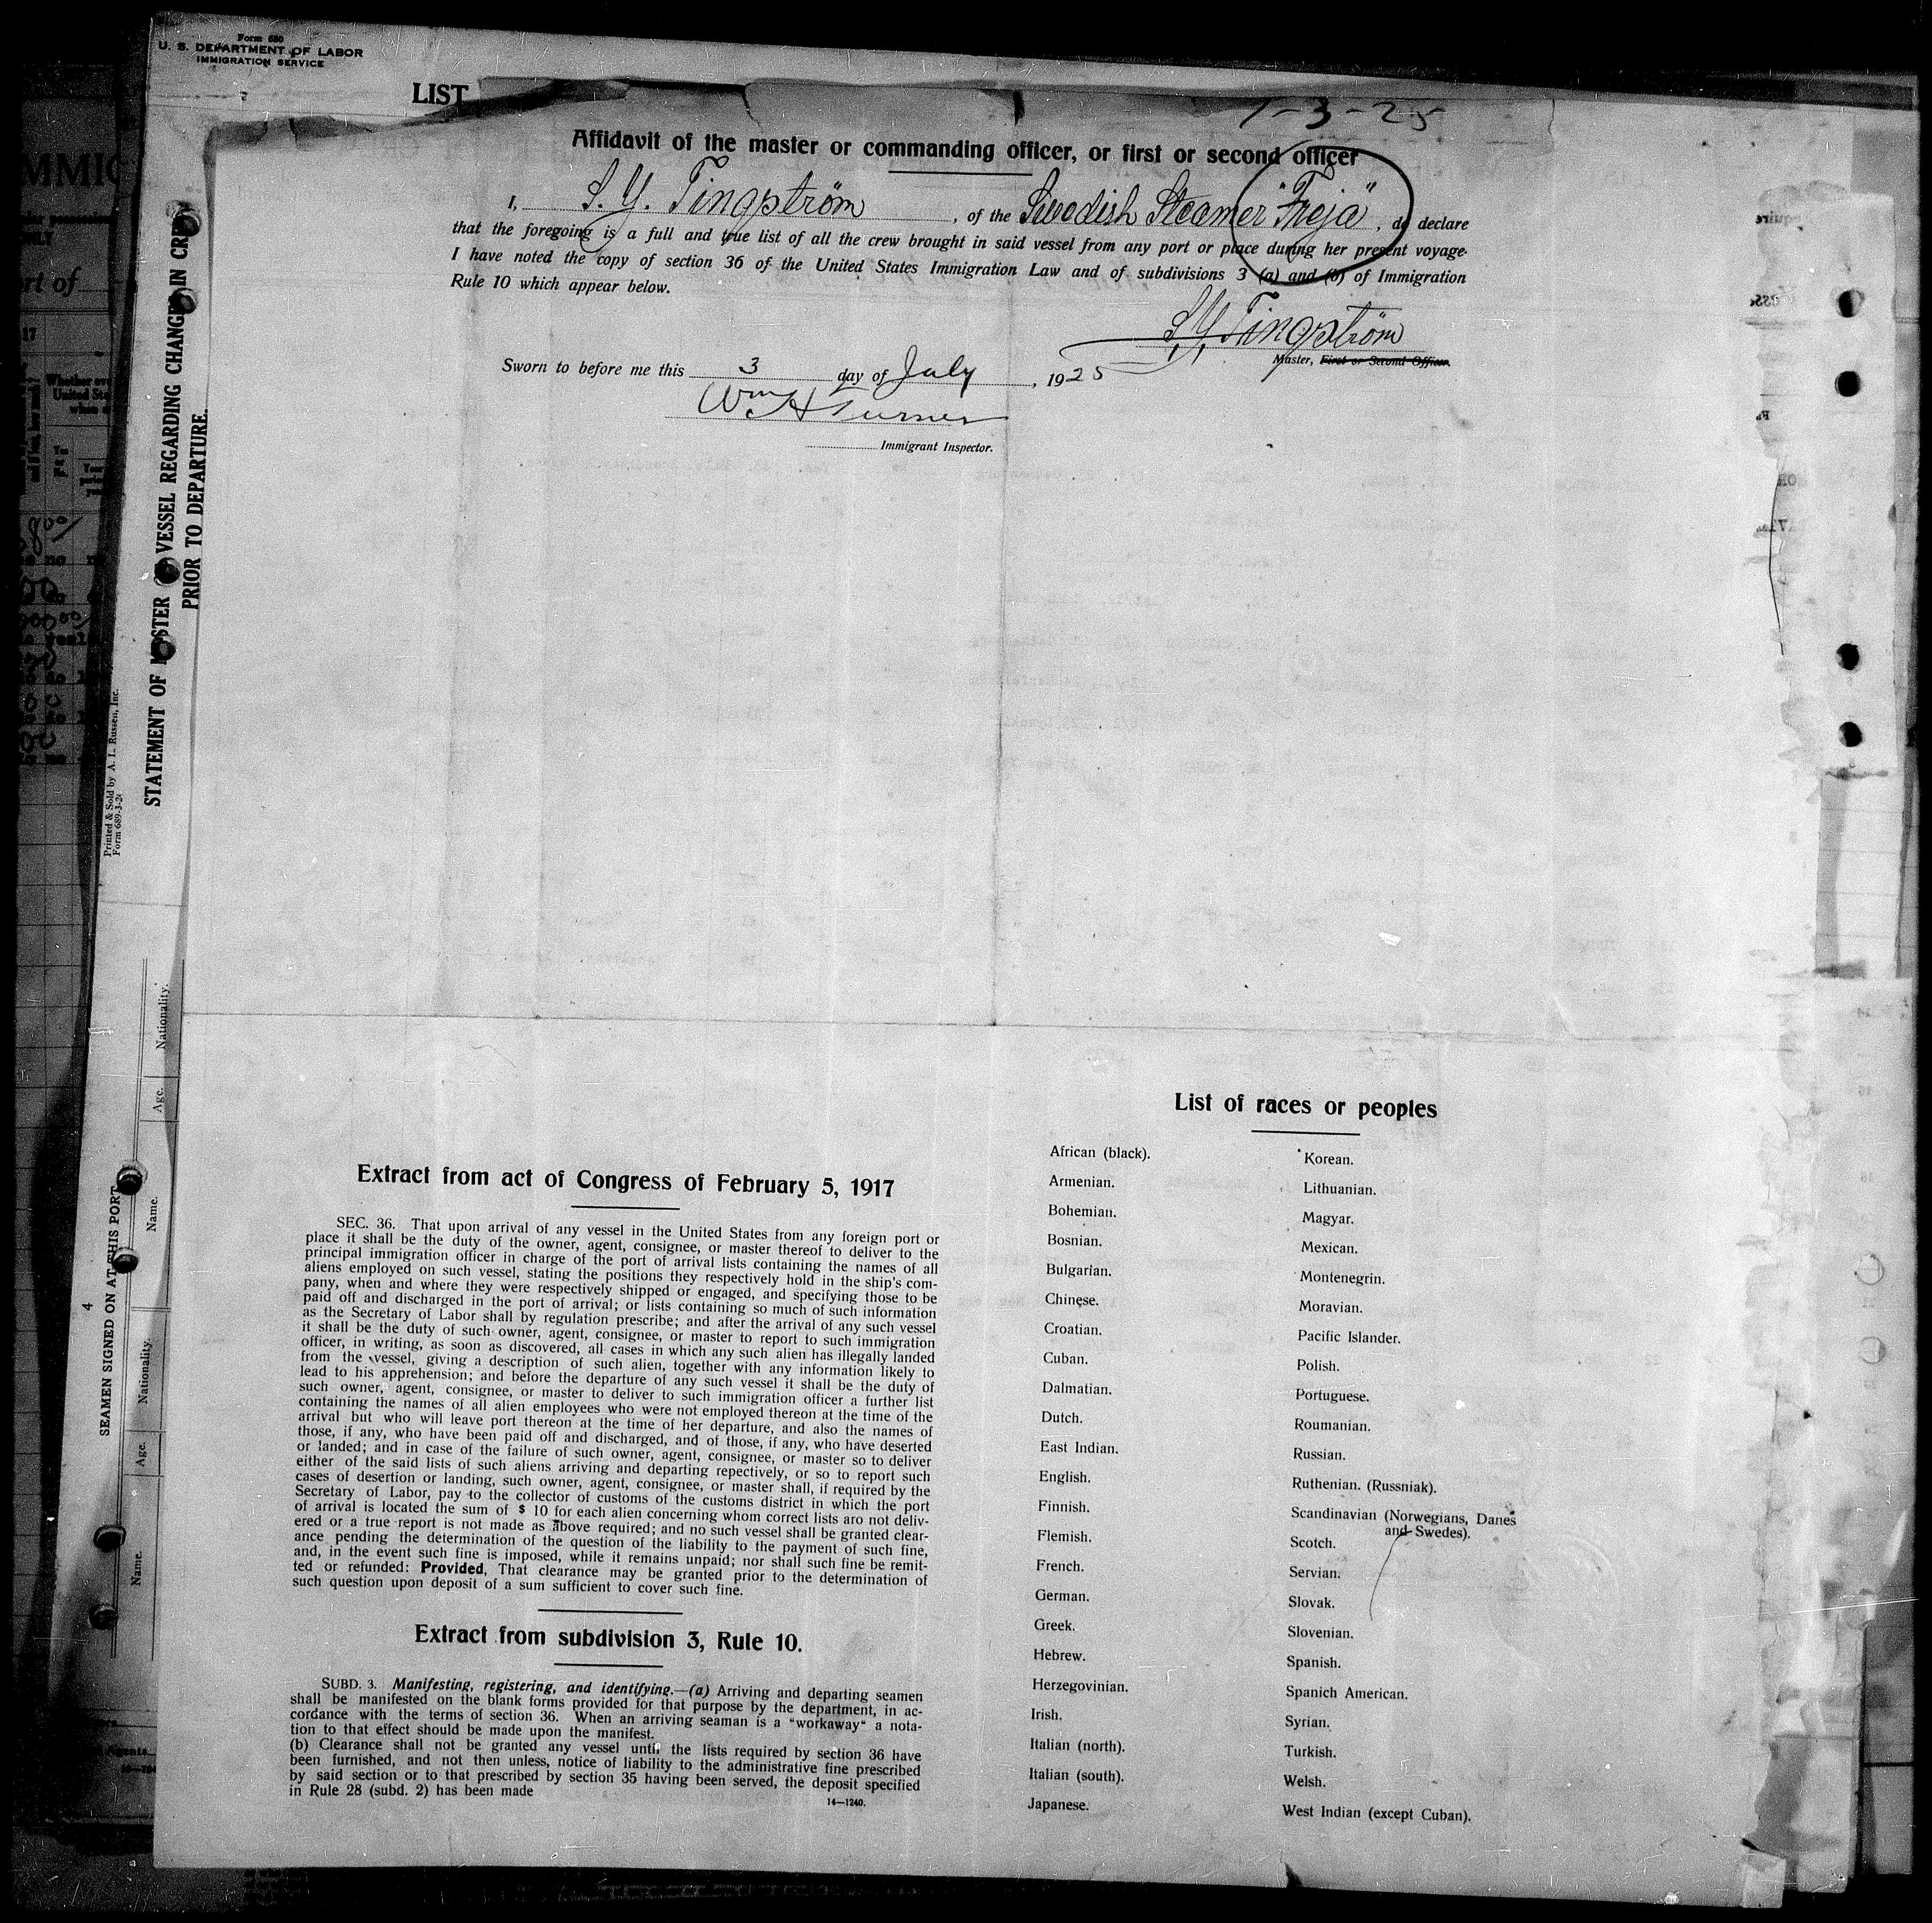 Form 680
U. S. DEPARTMENT OF LABOR
IMMIGRATION SERVICE
LIST
7-3-25
Affidavit of the master or commanding officer, or first or second officer
I, S. Y. Tingström, of the Swedish Steamer "Freja", do declare
that the foregoing is a full and true list of all the crew brought in said vessel from any port or place during her present voyage.
I have noted the copy of section 36 of the United States Immigration Law and of subdivisions 3 (a) and (b) of Immigration
Rule 10 which appear below.
S. Y. Tingström
Master, First or Second Officer.
Sworn to before me this 3 day of July, 1925
Wm H Turner
Immigrant Inspector.
STATEMENT OF MASTER OF VESSEL REGARDING CHANGES IN CREW
PRIOR TO DEPARTURE.
Printed & Sold by A. L. Russen, Inc.
Form 689-3-24
4
SEAMEN SIGNED ON AT THIS PORT
Name.
Age.
Nationality.
Name.
Age.
Nationality.
Extract from act of Congress of February 5, 1917
SEC. 36. That upon arrival of any vessel in the United States from any foreign port or
place it shall be the duty of the owner, agent, consignee, or master thereof to deliver to the
principal immigration officer in charge of the port of arrival lists containing the names of all
aliens employed on such vessel, stating the positions they respectively hold in the ship's com-
pany, when and where they were respectively shipped or engaged, and specifying those to be
paid off and discharged in the port of arrival; or lists containing so much of such information
as the Secretary of Labor shall by regulation prescribe; and after the arrival of any such vessel
it shall be the duty of such owner, agent, consignee, or master to report to such immigration
officer, in writing, as soon as discovered, all cases in which any such alien has illegally landed
from the vessel, giving a description of such alien, together with any information likely to
lead to his apprehension; and before the departure of any such vessel it shall be the duty of
such owner, agent, consignee, or master to deliver to such immigration officer a further list
containing the names of all alien employees who were not employed thereon at the time of the
arrival but who will leave port thereon at the time of her departure, and also the names of
those, if any, who have been paid off and discharged, and of those, if any, who have deserted
or landed; and in case of the failure of such owner, agent, consignee, or master so to deliver
either of the said lists of such aliens arriving and departing repectively, or so to report such
cases of desertion or landing, such owner, agent, consignee, or master shall, if required by the
Secretary of Labor, pay to the collector of customs of the customs district in which the port
of arrival is located the sum of $ 10 for each alien concerning whom correct lists aro not deliv-
ered or a true report is not made as above required; and no such vessel shall be granted clear-
ance pending the determination of the question of the liability to the payment of such fine,
and, in the event such fine is imposed, while it remains unpaid; nor shall such fine be remit-
ted or refunded: Provided, That clearance may be granted prior to the determination of
such question upon deposit of a sum sufficient to cover such fine.
Extract from subdivision 3, Rule 10.
SUBD. 3. Manifesting, registering, and identifying.—(a) Arriving and departing seamen
shall be manifested on the blank forms provided for that purpose by the department, in ac-
cordance with the terms of section 36. When an arriving seaman is a "workaway" a nota-
tion to that effect should be made upon the manifest.
(b) Clearance shall not be granted any vessel until the lists required by section 36 have
been furnished, and not then unless, notice of liability to the administrative fine prescribed
by said section or to that prescribed by section 35 having been served, the deposit specified
in Rule 28 (subd. 2) has been made
14—1240.
List of races or peoples
African (black).
Armenian.
Bohemian.
Bosnian.
Bulgarian.
Chinese.
Croatian.
Cuban.
Dalmatian.
Dutch.
East Indian.
English.
Finnish.
Flemish.
French.
German.
Greek.
Hebrew.
Herzegovinian.
Irish.
Italian (north).
Italian (south).
Japanese.
Korean.
Lithuanian.
Magyar.
Mexican.
Montenegrin.
Moravian.
Pacific Islander.
Polish.
Portuguese.
Roumanian.
Russian.
Ruthenian. (Russniak).
Scandinavian (Norwegians, Danes
and Swedes).
Scotch.
Servian.
Slovak.
Slovenian.
Spanish.
Spanich American.
Syrian.
Turkish.
Welsh.
West Indian (except Cuban).